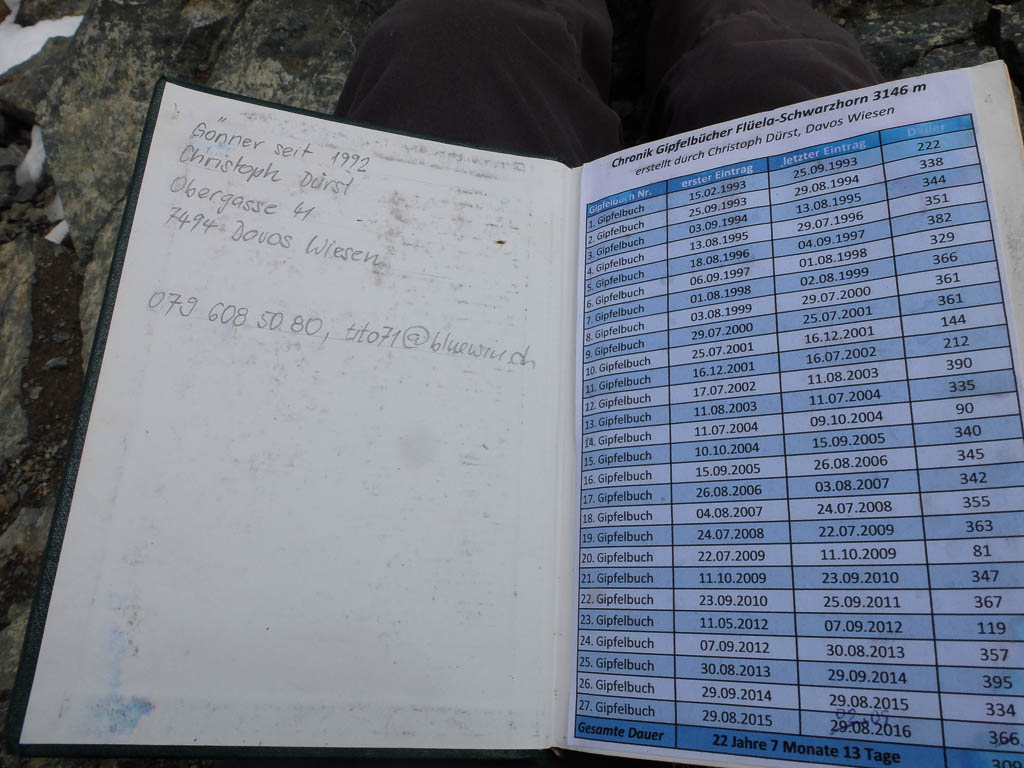 Gönner seit 1992
Christoph Dürst
Obergasse 41
7494 Davos Wiesen
079 608 50 80, tito71@bluewin.ch
Chronik Gipfelbücher Flüela-Schwarzhorn 3146 m
erstellt durch Christoph Dürst, Davos Wiesen
Gipfelbuch Nr. erster Eintrag letzter Eintrag Dauer
1. Gipfelbuch 15.02.1993 25.09.1993 222
2. Gipfelbuch 25.09.1993 29.08.1994 338
3. Gipfelbuch 03.09.1994 13.08.1995 344
4. Gipfelbuch 13.08.1995 29.07.1996 351
5. Gipfelbuch 18.08.1996 04.09.1997 382
6. Gipfelbuch 06.09.1997 01.08.1998 329
7. Gipfelbuch 01.08.1998 02.08.1999 366
8. Gipfelbuch 03.08.1999 29.07.2000 361
9. Gipfelbuch 29.07.2000 25.07.2001 361
10. Gipfelbuch 25.07.2001 16.12.2001 144
11. Gipfelbuch 16.12.2001 16.07.2002 212
12. Gipfelbuch 17.07.2002 11.08.2003 390
13. Gipfelbuch 11.08.2003 11.07.2004 335
14. Gipfelbuch 11.07.2004 09.10.2004 90
15. Gipfelbuch 10.10.2004 15.09.2005 340
16. Gipfelbuch 15.09.2005 26.08.2006 345
17. Gipfelbuch 26.08.2006 03.08.2007 342
18. Gipfelbuch 04.08.2007 24.07.2008 355
19. Gipfelbuch 24.07.2008 22.07.2009 363
20. Gipfelbuch 22.07.2009 11.10.2009 81
21. Gipfelbuch 11.10.2009 23.09.2010 347
22. Gipfelbuch 23.09.2010 25.09.2011 367
23. Gipfelbuch 11.05.2012 07.09.2012 119
24. Gipfelbuch 07.09.2012 30.08.2013 357
25. Gipfelbuch 30.08.2013 29.09.2014 395
26. Gipfelbuch 29.09.2014 29.08.2015 334
27. Gipfelbuch 29.08.2015 29.08.2016 366
Gesamte Dauer 22 Jahre 7 Monate 13 Tage